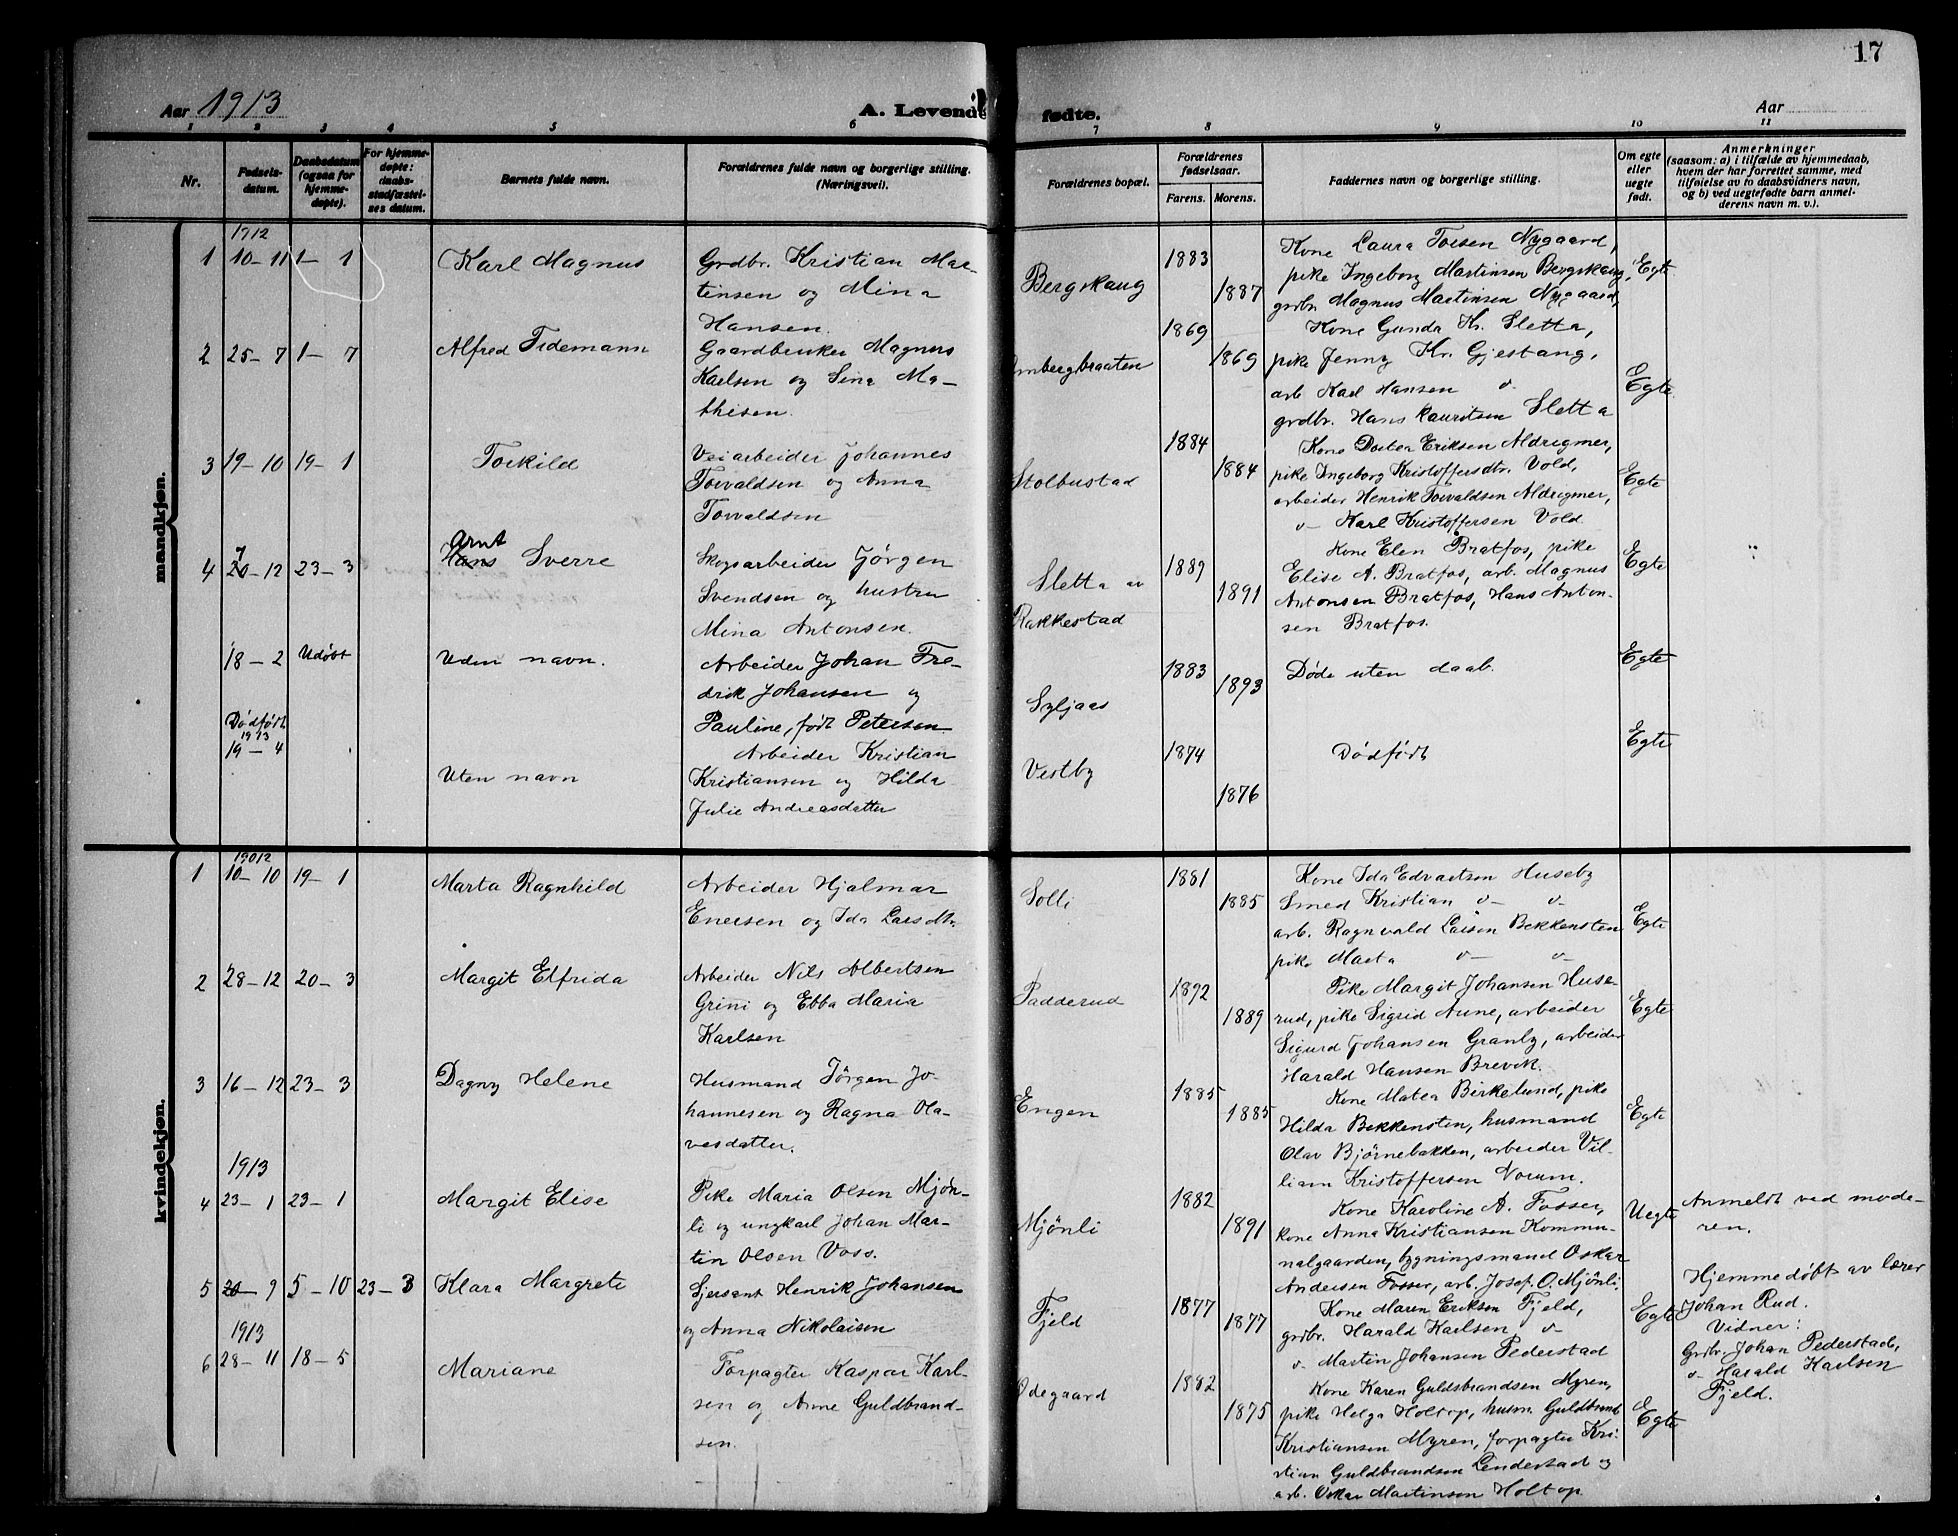 17
Aar 1913
A. Levende
fødte.
Aar
1 2 3 4 5 6
7 8 9 10 11
Nr.
Fødsels-
datum.
Daabsdatum
(ogsaa for
hjemme-
døpte).
For hjemme-
døpte:
daabs-
stadfæstel-
ses datum.
Barnets fulde navn.
Forældrenes fulde navn og borgerlige stilling.
(Næringsvei).
Forældrenes bopæl.
Forældrenes
fødselsaar.
Farens. Morens.
Faddernes navn og borgerlige stilling.
Om egte
eller
uegte
født.
Anmerkninger
(saasom: a) i tilfælde av hjemmedaab,
hvem der har forrettet samme, med
tilføielse av to daabsvidners navn,
og b) ved uegtefødte barn anmel-
derens navn m. v.).
mandkjøn.
1912
1 10-11 1-1
Karl Magnus
Grdbr. Kristian Mar-
tinsen og Mina
Hansen.
Bergskaug
1883
1887
Kone Laura Torsen Nygaard,
pike Ingeborg Martinsen Bergskaug,
grdbr. Magnus Martinsen Nygaard,
Egte
2 25-7 1-7
Alfred Tidemann
Gaardbruker Magnus
Karlsen og Lina Ma-
thisen.
mbergbraaten
1869
1869
Kone Gunda Kr. Sletta,
pike Jenny Kr. Gjestang,
arb. Karl Hansen o
grdbr. Hans Lauritsen Sletta
Egte
3 19-10 19-1
Torkild
Veiarbeider Johannes
Torvaldsen og Anna
Torvaldsen
Stolbustad
1884
1884
Kone Dortea Eriksen Aldrigmer,
pike Ingeborg Kristoffersdtr. Vold,
arbeider Henrik Torvaldsen Aldrigmer,
o- Karl Kristoffersen Vold.
Egte
4 20-12 23-3
7
Arnt
Hans Sverre
Skogsarbeider Jørgen
Svendsen og hustru
Mina Antonsen.
Sletta av
Rakkestad
1889
1891
Kone Elen Bratfos, pike
Elise A. Bratfos, arb. Magnus
Antonsen Bratfos, Hans Anton-
sen Bratfos.
Egte
18-2 Udøbt
Uden navn.
Arbeider Johan Fre-
drik Johansen og
Pauline, født Petersen
Syljaas
1883
1893
Døde uten daab.
Egte
Dødfødt
1913
19-4
Uten navn
Arbeider Kristian
Kristiansen og Hilda
Julie Andreasdatter
Vestby
1874
1876
Dødfødt
Egte
kvindekjøn.
19012
1 10-10 19-1
Marta Ragnhild
Arbeider Hjalmar
Enersen og Ida Larsdtr.
Solli
1881
1885
Kone Ida Edvartsen Huseby
Smed Kristian o- o-
arb. Ragnvald Larsen Bekkensten
pike Marta o- o-
Egte
2 28-12 20-3
Margit Elfrida
Arbeider Nils Albertsen
Grini og Ebba Maria
Karlsen
Padderud
1892
1889
Pike Margit Johansen Huse-
rud, pike Sigrid Aune, arbeider
Sigurd Johansen Granly, arbeider
Harald Hansen Brevik.
Egte
3 16-12 23-3
Dagny Helene
Husmand Jørgen Jo-
hannesen og Ragna Ola-
vesdatter.
Engen
1885
1885
Kone Matea Birkelund, pike
Hilda Bekkensten, husmand
Olav Bjørnebakken, arbeider Vil-
liam Kristoffersen Norum.
Egte
1913
4 23-1 23-1
Margit Elise
Pike Maria Olsen Mjøn-
li og ungkarl Johan Mar-
tin Olsen Voss.
Mjønli
1882
1891
Kone Karoline A. Fosser,
kone Anna Kristiansen Kommu-
nalgaarden, bygningsmand Oskar
Andersen Fosser, arb. Josef O. Mjønli.
Uegte
Anmeldt ved mode-
ren.
5 20-9 5-10 23-3
Klara Margrete
Sjersant Henrik Johansen
og Anna Nikolaisen
Fjeld
1877
1877
Kone Maren Eriksen Fjeld,
grdbr. Harald Karlsen o-
o- Martin Johansen Pederstad
Egte
Hjemmedøbt av lærer
Johan Rud.
Vidner:
Grdbr. Johan Pederstad,
o- Harald Karlsen
Fjeld.
1913
6 28-11 18-5
Mariane
Forpagter Kaspar Karl-
sen og Anne Guldbrand-
sen.
Ødegaard
1882
1875
Kone Karen Guldsbrandsen Myren,
pike Helga Holtop, husm. Guldbrand
Kristiansen Myren, forpagter Kri-
stian Guldbrandsen Lenderstad og
arb. Oskar Martinsen Holtop.
Egte